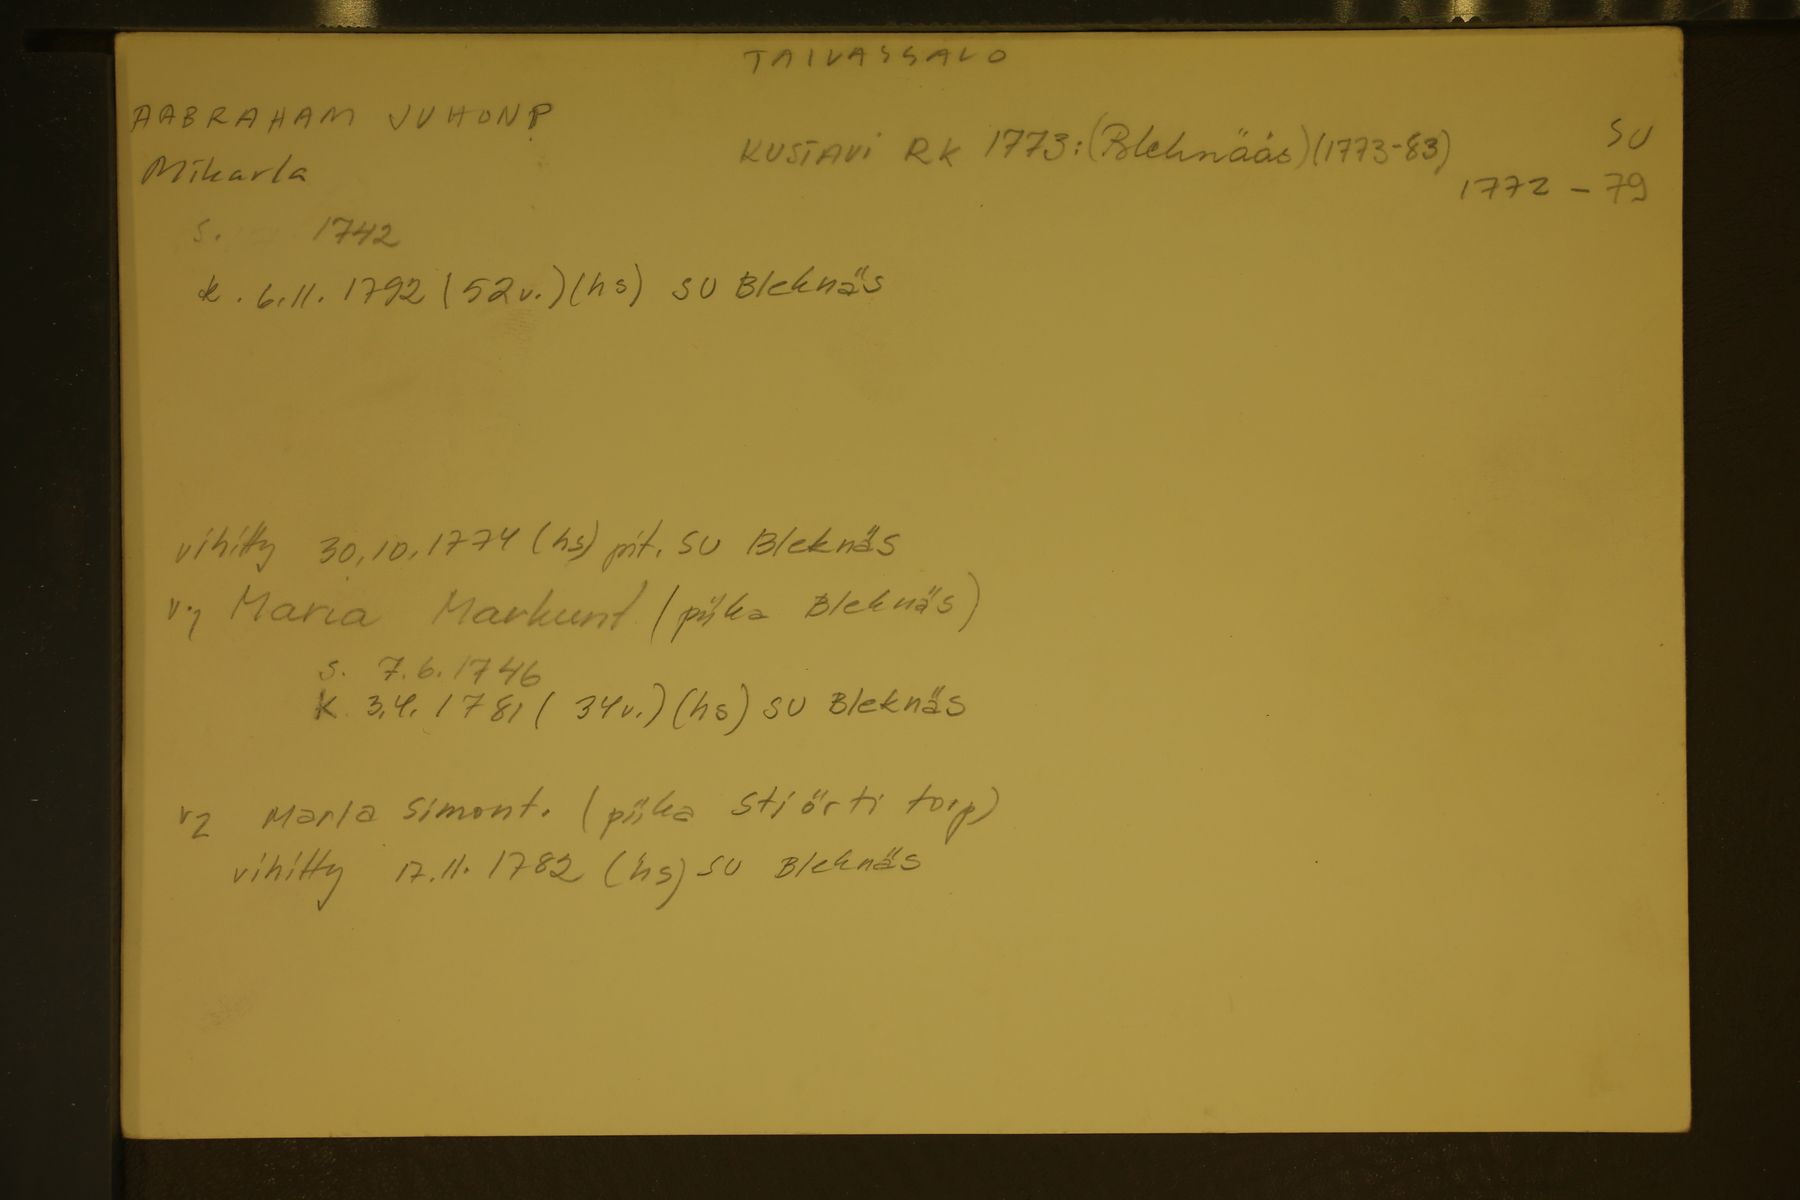 TAIVASSALO
AABRAHAM JUHONP
Mikarla
KUSTAVI RK 1773: (Bleknääs) (1773-83)
SU
1772 - 79
s. 1742
k. 6.11. 1792 (52 v.) (hs) SU Bleknäs
vihitty 30.10.1774 (hs) pit. SU Bleknäs
v1 Maria Markunt (piika Bleknäs)
s. 7.6.1746
k 3.4. 1781 (34v.) (hs) SU Bleknäs
v2 Maria Simont. (piika Stiörti torp)
vihitty 17.11. 1782 (hs) SU Bleknäs